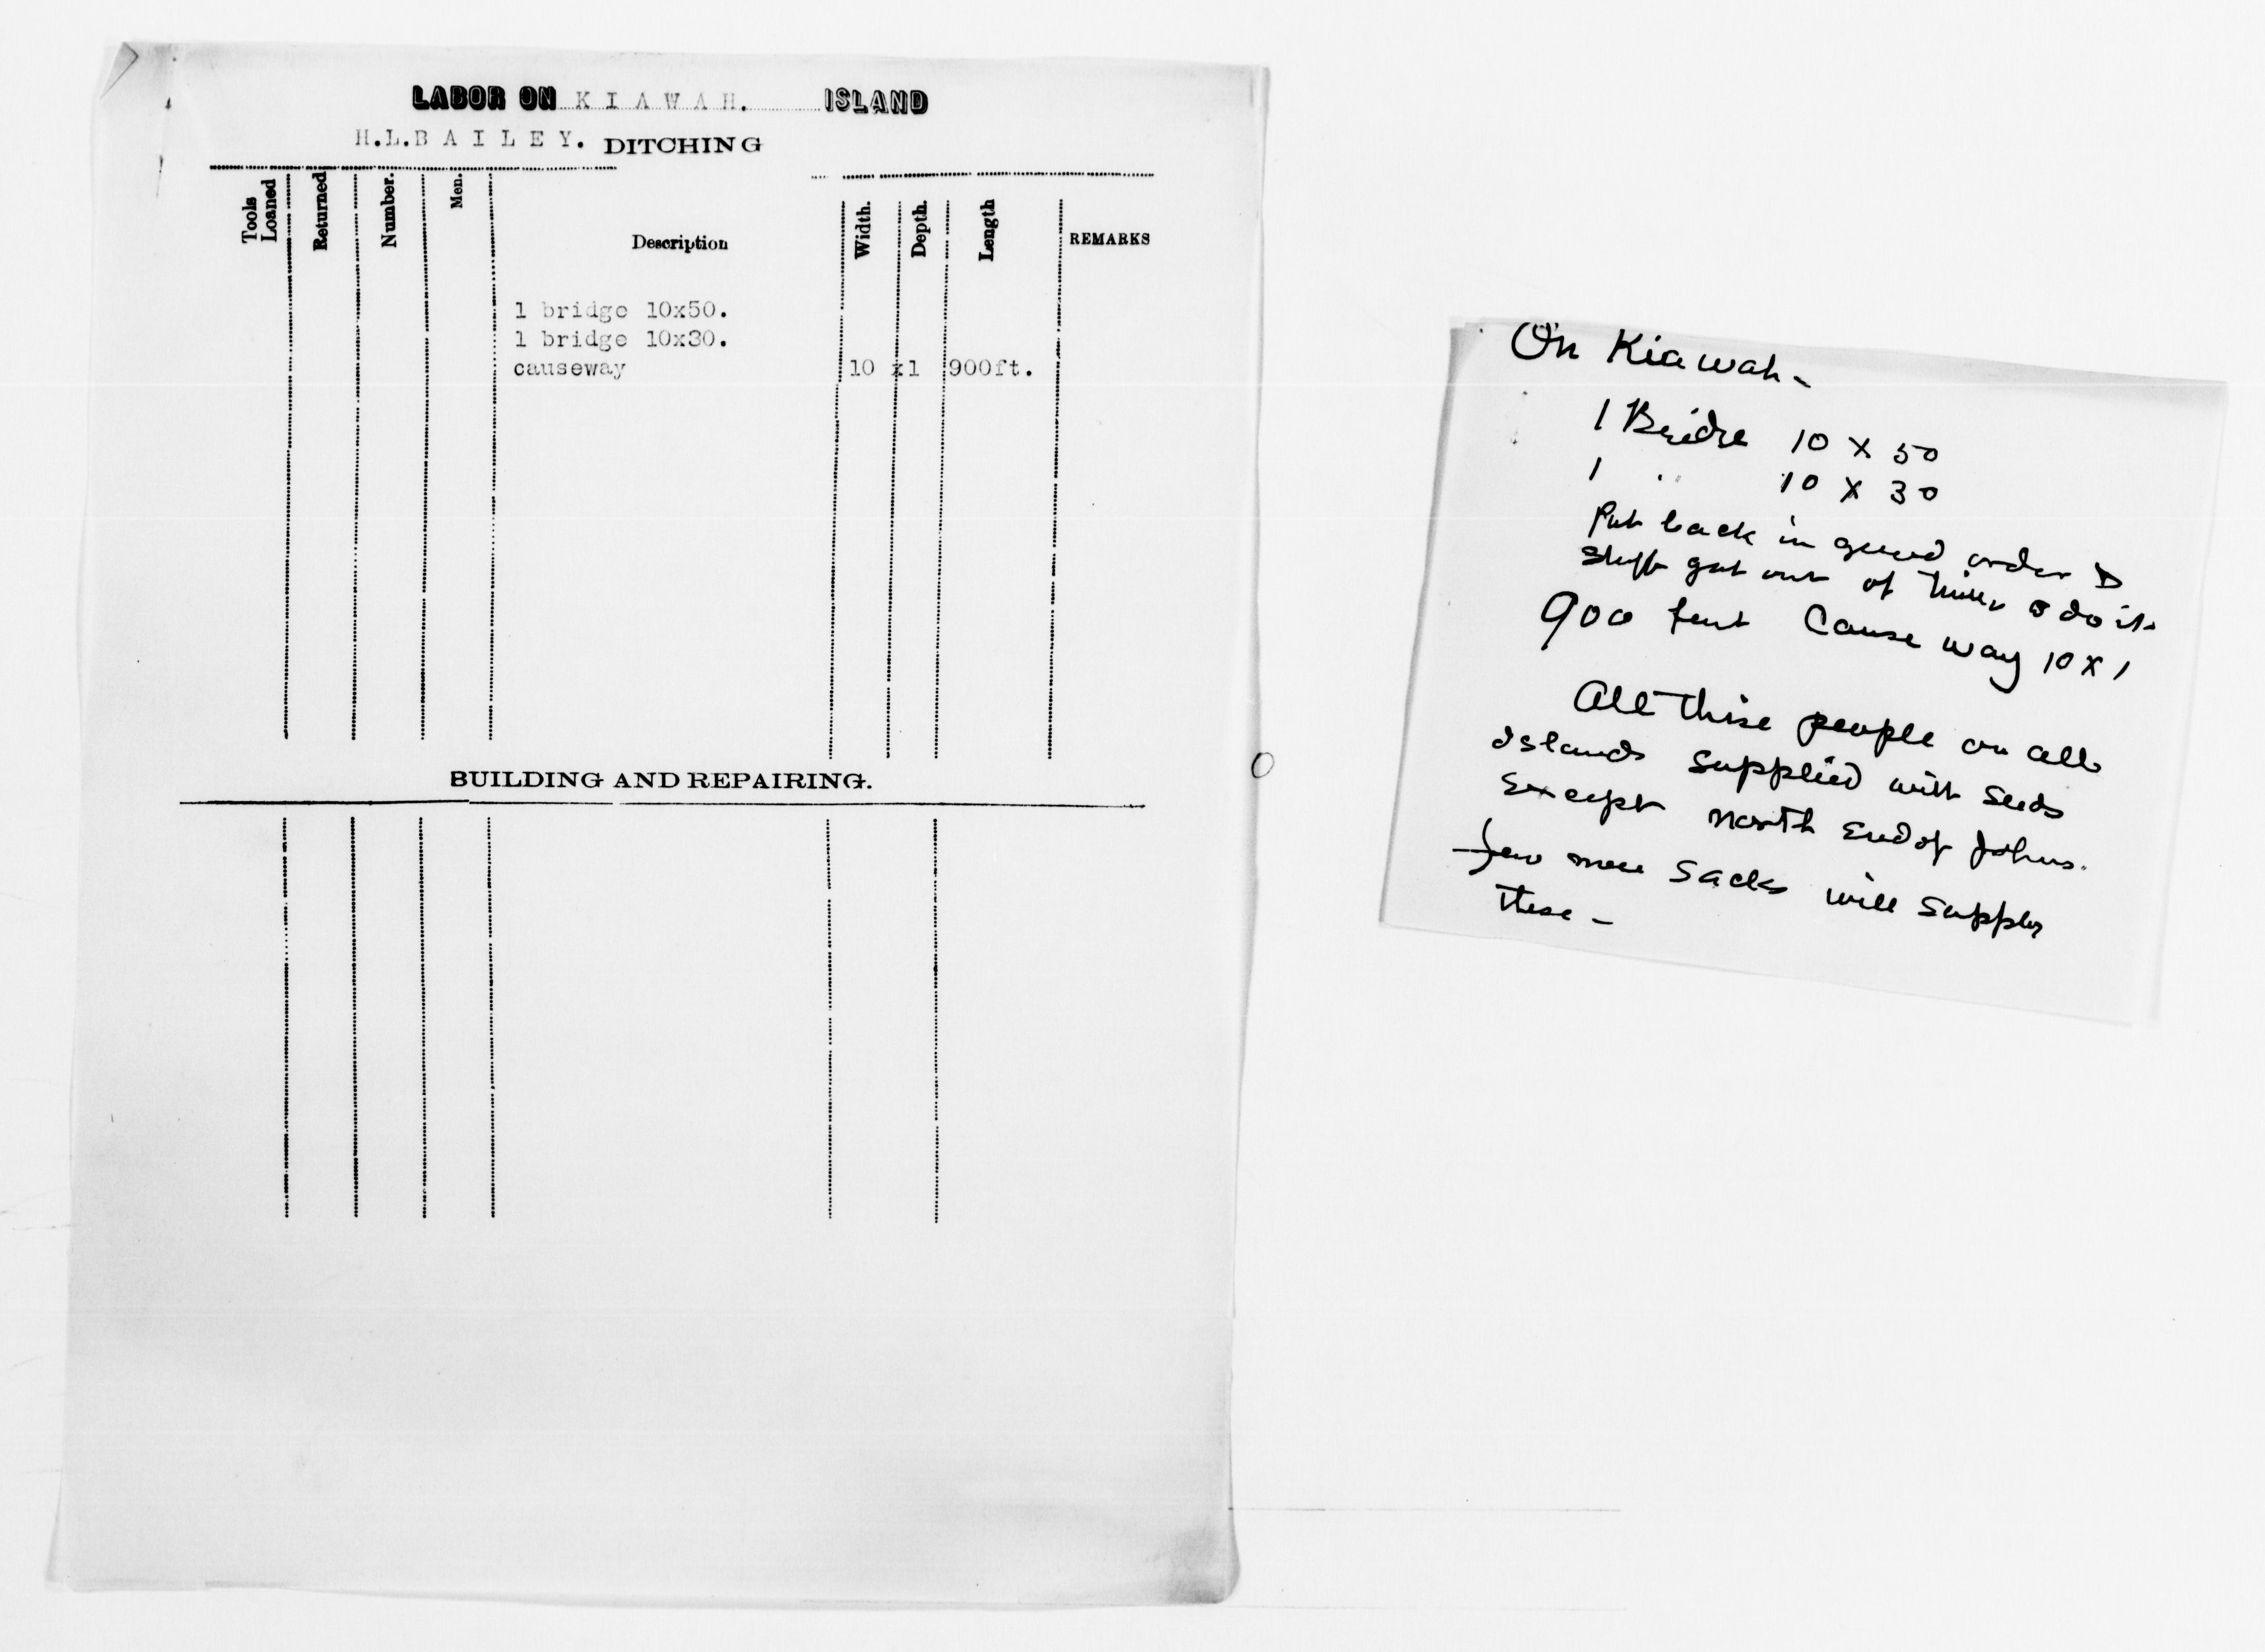 LABOR ON KIAWAH. ISLAND
H.L.BAILEY. DITCHING
Tools Loaned Returned Number. Men. Description Width. Depth. Length REMARKS
1 bridge 10x50.
1 bridge 10x30.
causeway 10 x1 900ft.
BUILDING AND REPAIRING.
On Kiawah-
1 Bridge 10 x 50
1 " 10 x 30
Put back in good order
Stuff got out of do it
900 feet Cause way 10 x 1
All these people on all
Islands supplied with seeds
Except North End of Johns.
few more sacks will supply
these -